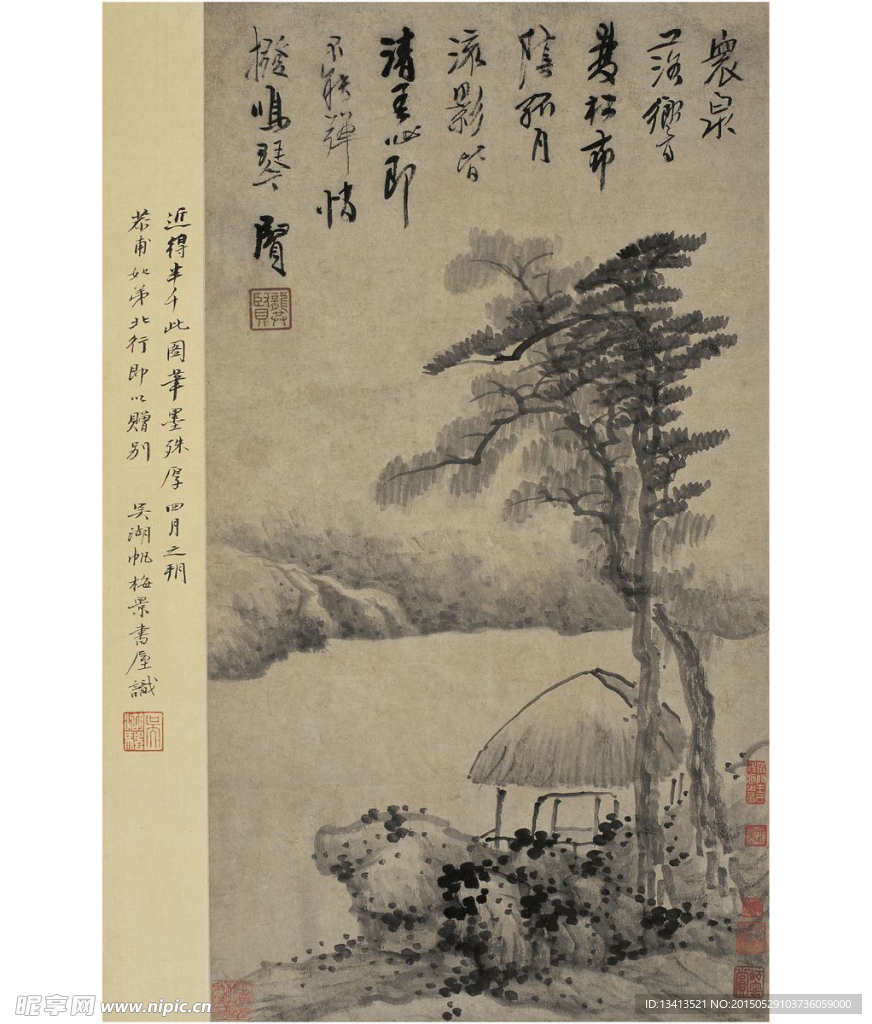 衆泉
落響百
疊松布
陰孤月
流影皆
清吾心即
不能禅悄
撥鳴琴 賢
龔賢
近得半千此圖筆墨殊厚四月之朔
恭甫如弟北行即以贈别 吴湖帆梅景書屋識
昵享网 www.nipic.cn
ID:13413521 NO:20150529103736059000